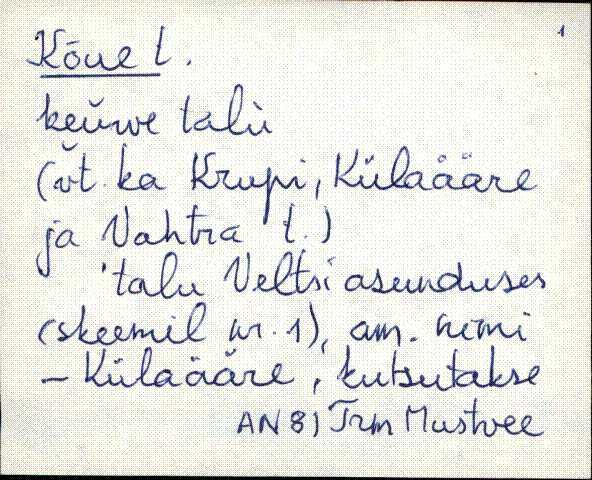 1
Kõue t.
keŭwe talù
(vt. ka Krupi, Külaääre
ja Vahtra t.)
'talu Veltsi asunduses
(skeemil nr. 1), am. nimi
– Külaääre, kutsutakse
AN 81 Trm Mustvee